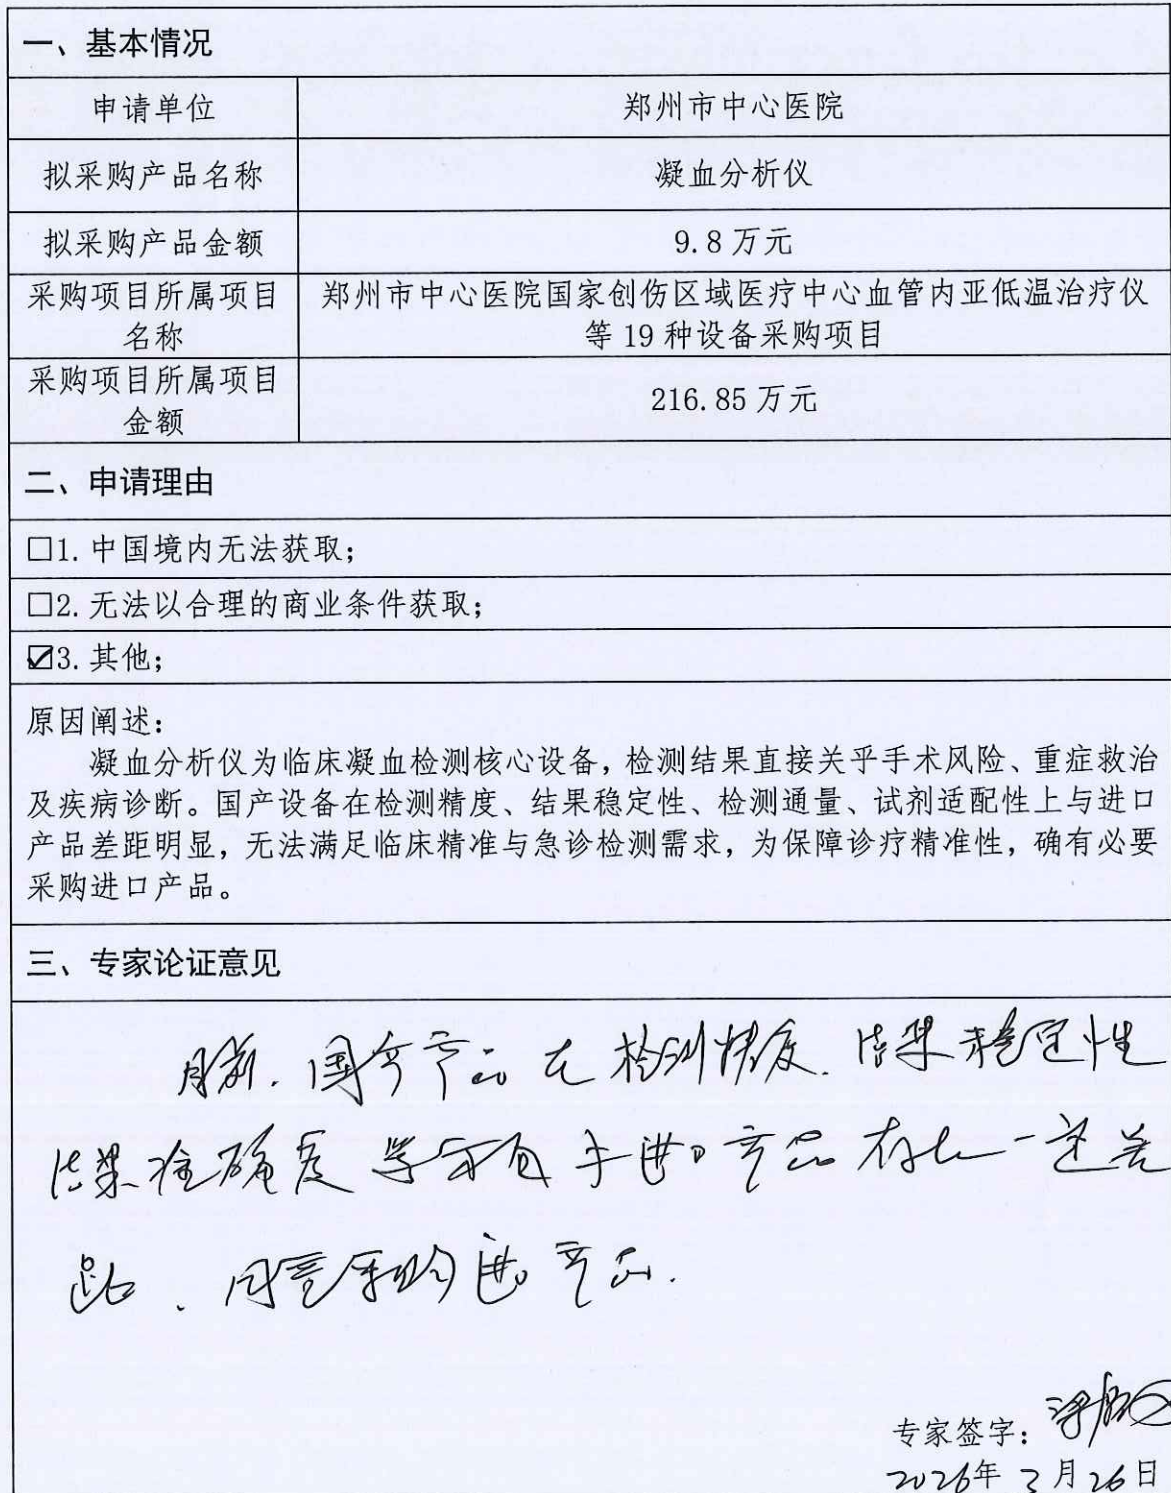 一、基本情况
申请单位
郑州市中心医院
拟采购产品名称
凝血分析仪
拟采购产品金额
9.8万元
采购项目所属项目
名称
郑州市中心医院国家创伤区域医疗中心血管内亚低温治疗仪
等19种设备采购项目
采购项目所属项目
金额
216.85万元
二、申请理由
□1.中国境内无法获取;
□2.无法以合理的商业条件获取;
☑3.其他;
原因阐述:
凝血分析仪为临床凝血检测核心设备,检测结果直接关乎手术风险、重症救治
及疾病诊断。国产设备在检测精度、结果稳定性、检测通量、试剂适配性上与进口
产品差距明显,无法满足临床精准与急诊检测需求,为保障诊疗精准性,确有必要
采购进口产品。
三、专家论证意见
目前.国产产品在检测精度.结果稳定性
结果准确度等方面与进口产品存在一定差
距.同意采购进口产品.
专家签字:
2026年3月26日